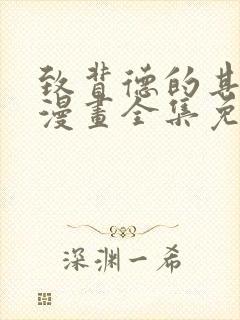 致背德的其
漫畫全集免
深渊一希